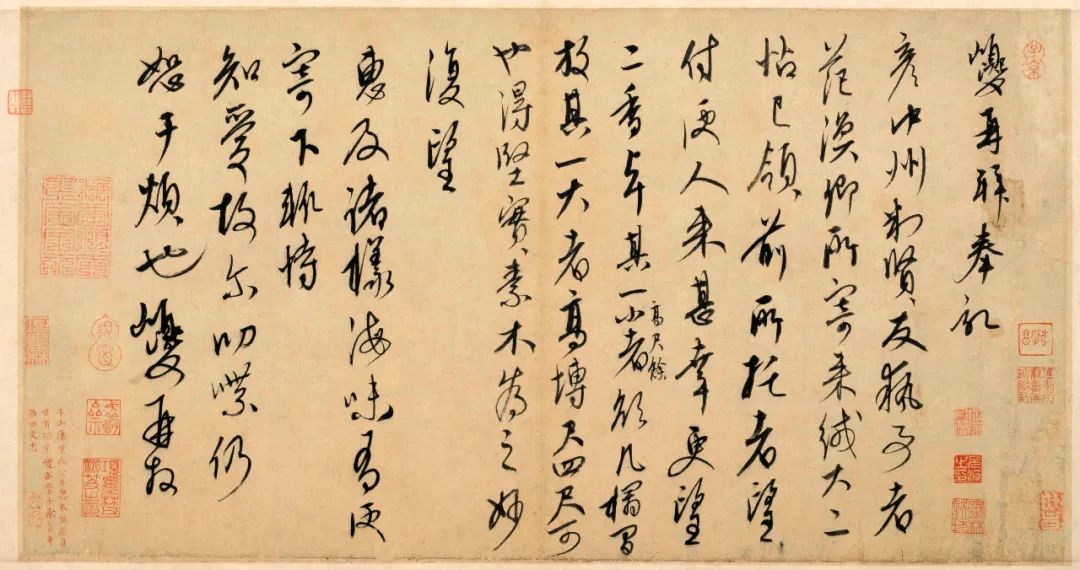 巎再拜奉記
彥中州判賢友執事者
范漢卿所寄來緘大二
帖已領前所托者望
付便人來甚幸更望
二香卓其一小者高尺餘於几榻間
放其一大者高博尺四尺可
也得堅實素木為之妙
復望
惠及諸樣海味有便
寄下輒恃
知愛故尔叨瀆仍
恕干煩也巎再拜